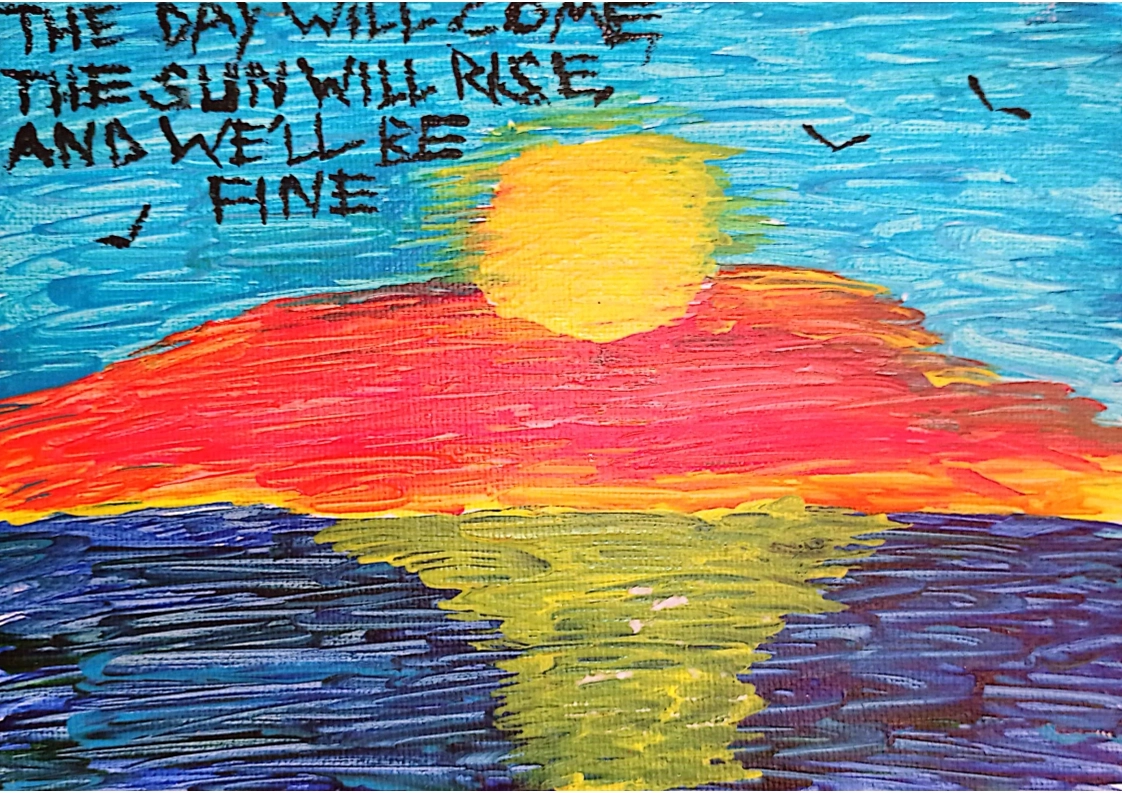 THE DAY WILL COME,
THE SUN WILL RISE,
AND WE'LL BE
FINE